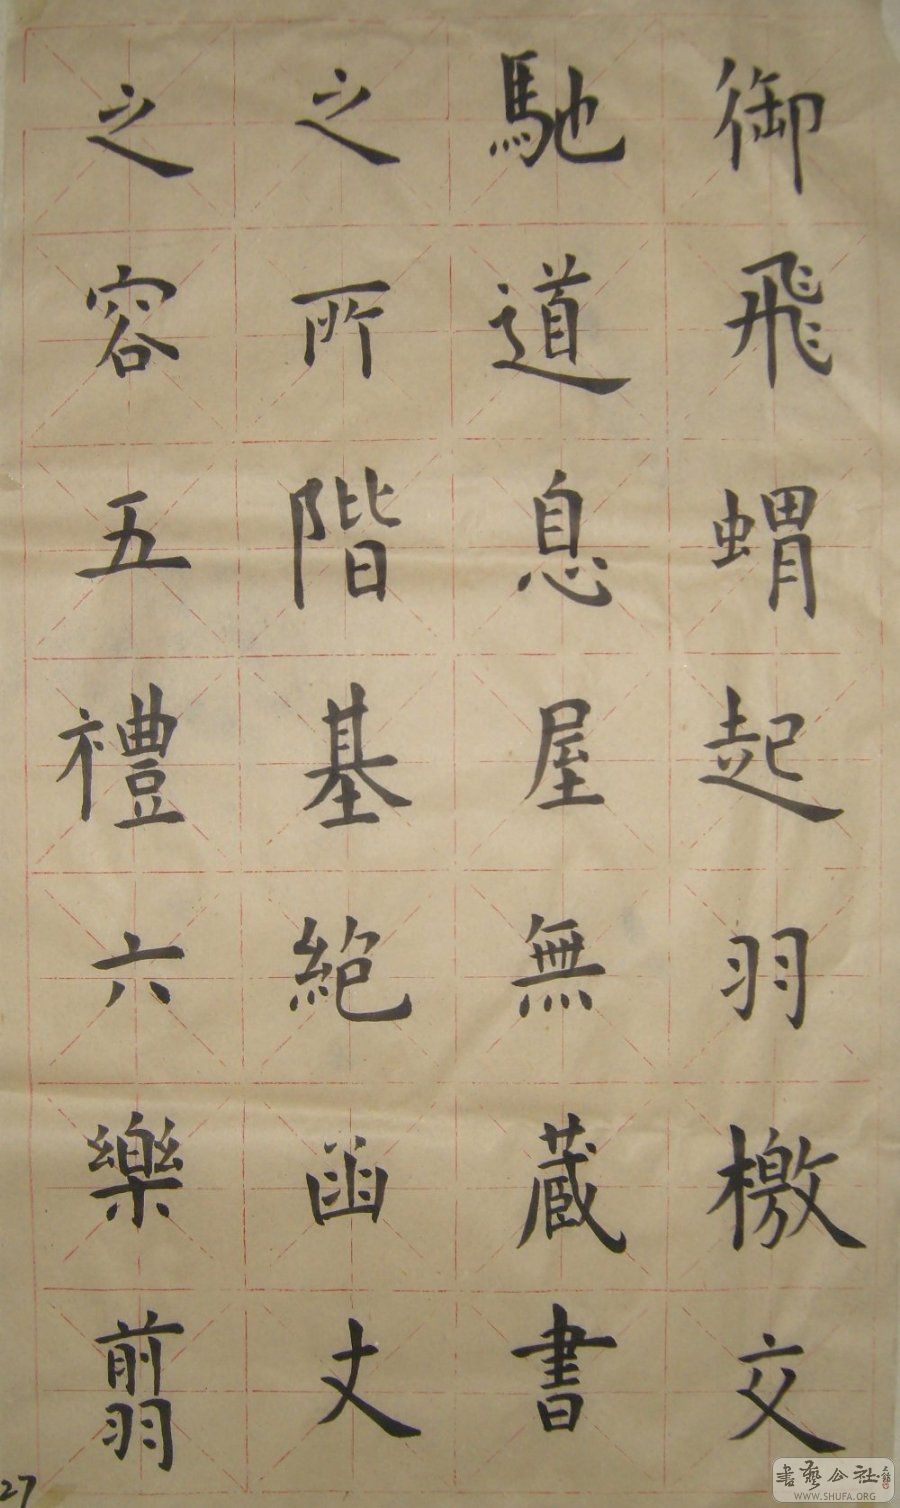 御飛蝟起羽檄交
馳道息屋無蔵書
之所階基絕函丈
之容五禮六樂翦
27
書藝公社
WWW.SHUFA.ORG